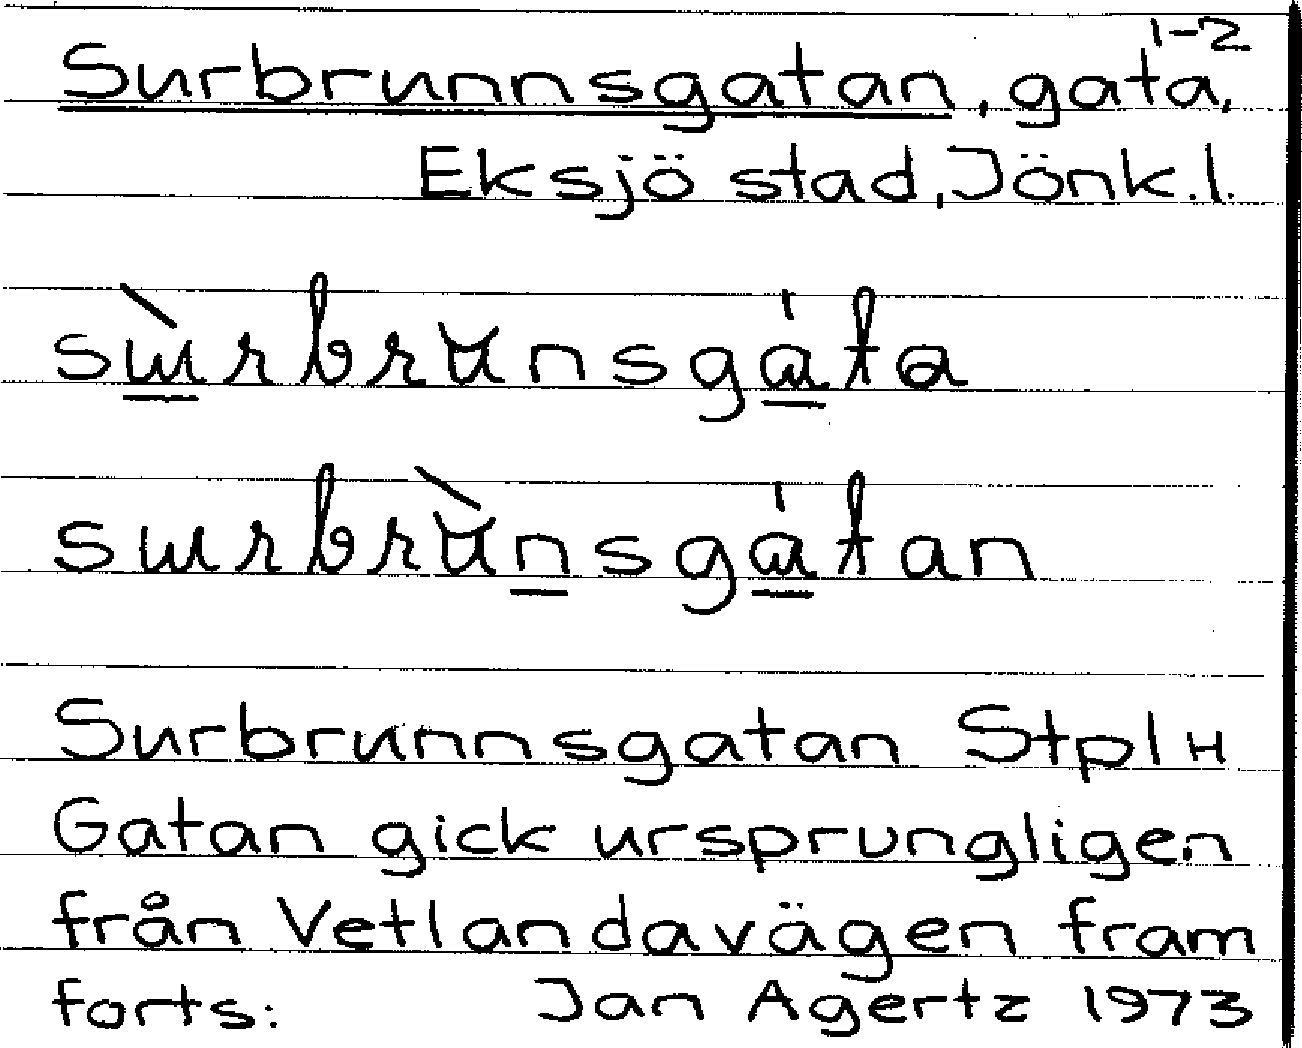 1-2
Surbrunnsgatan, gata,
Eksjö stad, Jönk.l.
sɯ̀rbrunsgáta
sɯrbrùnsgátan
Surbrunnsgatan Stpl H
Gatan gick ursprungligen
från Vetlandavägen fram
forts: Jan Agertz 1973